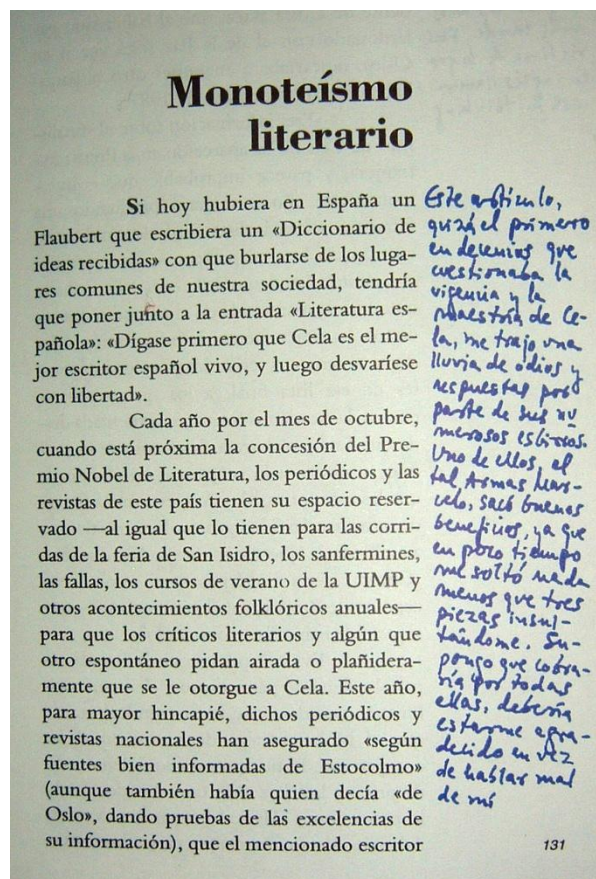 Monoteísmo
literario
Si hoy hubiera en España un
Flaubert que escribiera un «Diccionario de
ideas recibidas» con que burlarse de los luga-
res comunes de nuestra sociedad, tendría
que poner junto a la entrada «Literatura es-
pañola»: «Dígase primero que Cela es el me-
jor escritor español vivo, y luego desvaríese
con libertad».
Cada año por el mes de octubre,
cuando está próxima la concesión del Pre-
mio Nobel de Literatura, los periódicos y las
revistas de este país tienen su espacio reser-
vado —al igual que lo tienen para las corri-
das de la feria de San Isidro, los sanfermines,
las fallas, los cursos de verano de la UIMP y
otros acontecimientos folklóricos anuales—
para que los críticos literarios y algún que
otro espontáneo pidan airada o plañidera-
mente que se le otorgue a Cela. Este año,
para mayor hincapié, dichos periódicos y
revistas nacionales han asegurado «según
fuentes bien informadas de Estocolmo»
(aunque también había quien decía «de
Oslo», dando pruebas de las excelencias de
su información), que el mencionado escritor
Este artículo,
quizá el primero
en decenios que
cuestionaba la
vigencia y la
maestría de Ce-
la, me trajo una
lluvia de odios y
respuestas por
parte de sus nu
merosos esbirros.
Uno de ellos, el
tal Armas Mar-
celo, sacó buenos
beneficios, ya que
en poco tiempo
me soltó nada
menos que tres
piezas insul-
tándome. Su-
pongo que cobra-
ría por todas
ellas, debería
estarme agra-
decido en vez
de hablar mal
de mí
131